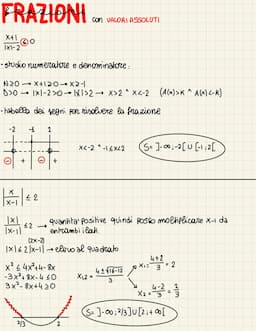 FRAZIONI con VALORI ASSOLUTI
x+1
|x|-2 ≤ 0
- studio numeratore e denominatore:
N≥0 → x+1≥0 → x≥-1
D>0 → |x|-2>0 → |x|>2 → x>2 ^ x<-2 (A(x)>K ^ A(x)<-K)
- tabella dei segni per risolvere la frazione
-2 -1 2
⊖ + ⊖ +
x<-2 ^ -1≤x<2
S= ]-∞;-2[ ∪ [-1;2[
|x/(x-1)| ≤ 2
|x|/|x-1| ≤ 2 → quantità positive quindi posso moltiplicare x-1 da
entrambi i lati
(2x-2)
|x| ≤ 2|x-1| → elevo al quadrato
x² ≤ 4x²+4-8x
-3x²+8x-4 ≤ 0
3x²-8x+4 ≥ 0
x₁,₂ = (4±√(16-12))/3
x₁: (4+2)/3 = 2
x₂ = (4-2)/3 = 2/3
2/3 2
S= ]-∞;2/3] ∪ [2;+∞[